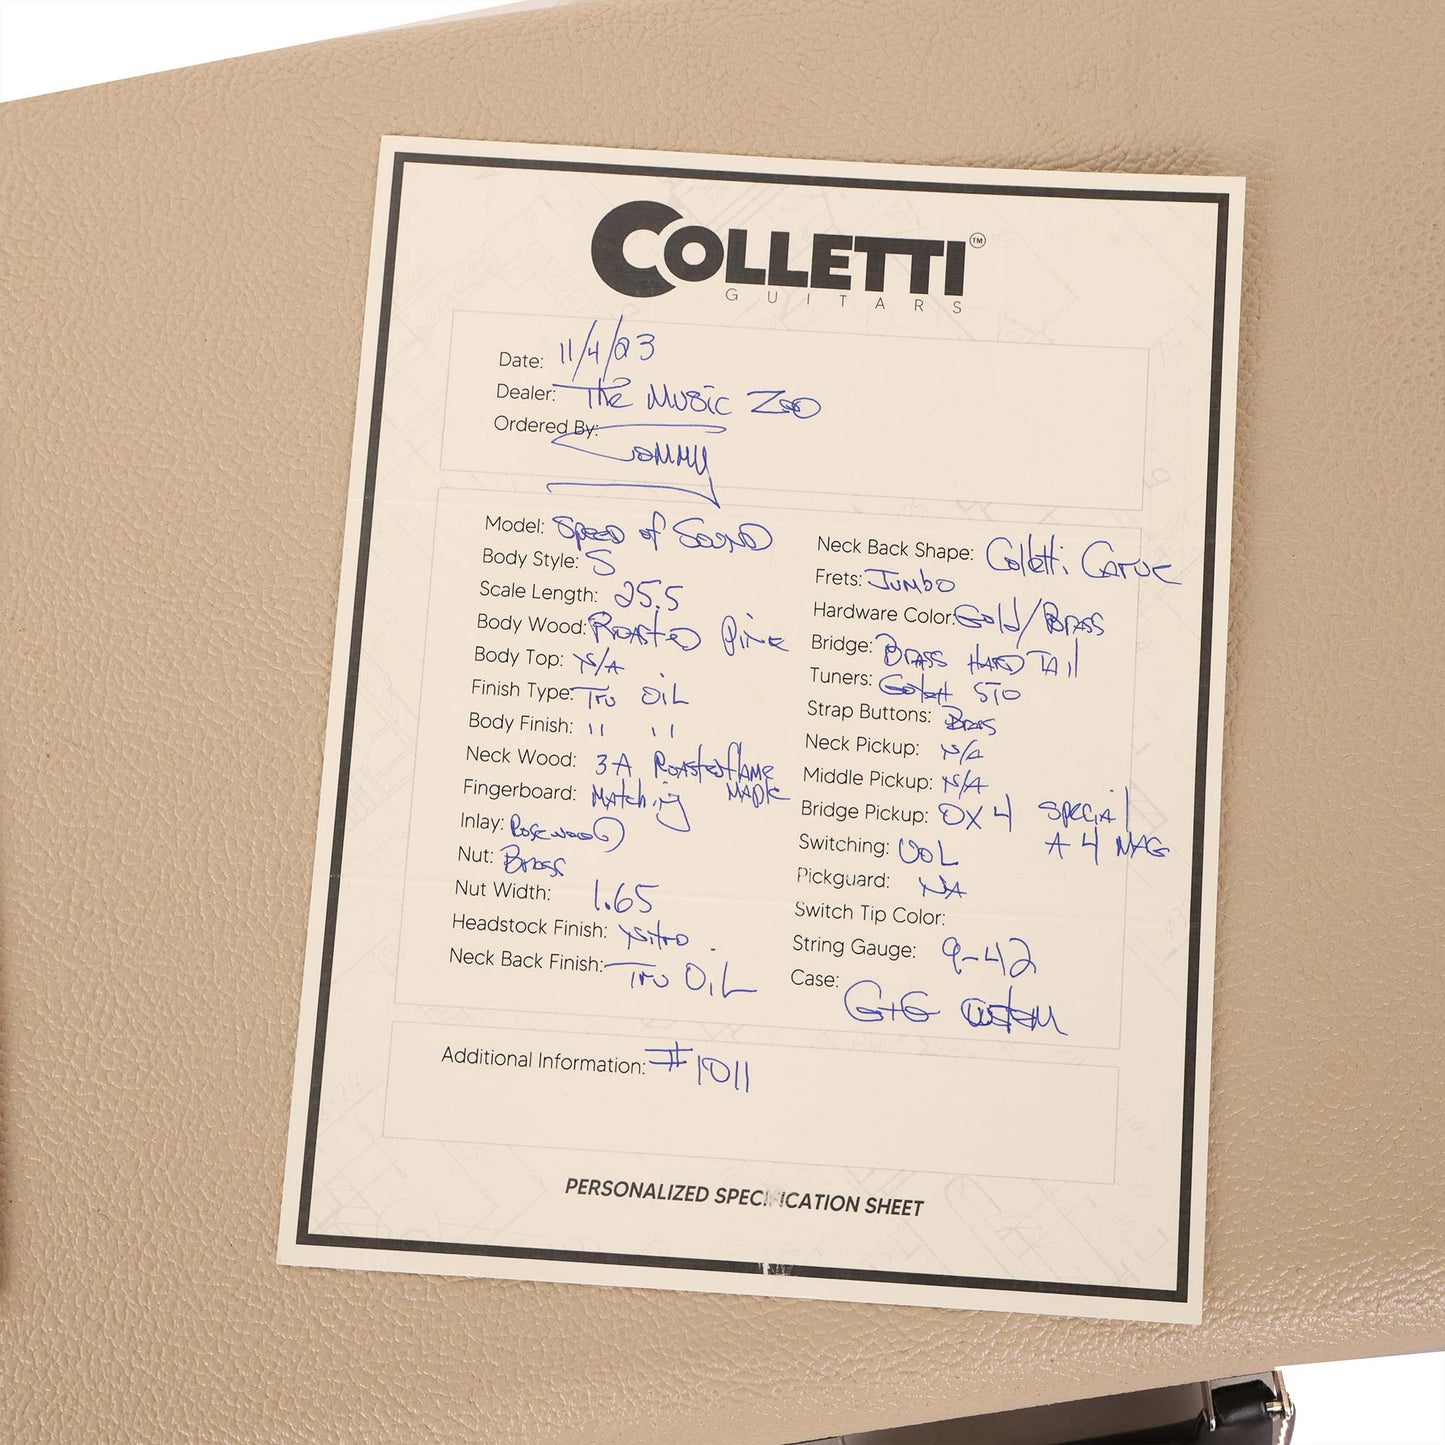 COLLETTI™
GUITARS
Date: 11/4/23
Dealer: The Music Zoo
Ordered By: Tommy
Model: Speed of Sound
Body Style: S
Scale Length: 25.5
Body Wood: Roasted Pine
Body Top: N/A
Finish Type: Tru Oil
Body Finish: " "
Neck Wood: 3A Roasted flame
Maple
Fingerboard: Matching
Inlay: Rosewood
Nut: Brass
Nut Width: 1.65
Headstock Finish: Nitro
Neck Back Finish: Tru Oil
Neck Back Shape: Colletti Carve
Frets: Jumbo
Hardware Color: Gold/Brass
Bridge: Brass Hard Tail
Tuners: Gotoh STD
Strap Buttons: Brass
Neck Pickup: N/A
Middle Pickup: N/A
Bridge Pickup: OX4 Special
A4 MAG
Switching: VOL
Pickguard: NA
Switch Tip Color:
String Gauge: 9-42
Case: G+G Custom
Additional Information: #1011
PERSONALIZED SPECIFICATION SHEET